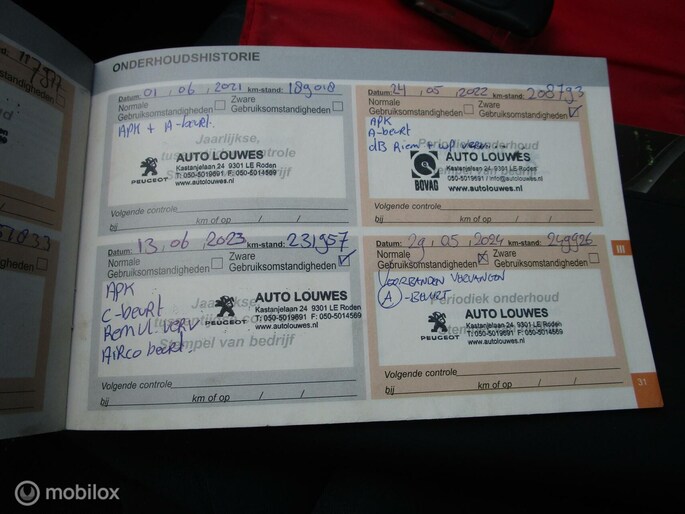 ONDERHOUDSHISTORIE
Datum: 01 , 06 , 2021 km-stand: 189018
Normale
Gebruiksomstandigheden
Zware
Gebruiksomstandigheden
APK + A-beurt.
Jaarlijkse,
Stempel van bedrijf
PEUGEOT
AUTO LOUWES
Kastanjelaan 24 9301 LE Roden
T: 050-5019691 F: 050-5014569
www.autolouwes.nl
Volgende controle
bij km of op / /
Datum: 24 , 05 , 2022 km-stand: 208793
Normale
Gebruiksomstandigheden
Zware
Gebruiksomstandigheden
APK
A-beurt
dB Riem + wp
Periodiek onderhoud
BOVAG
AUTO LOUWES
Kastanjelaan 24, 9301 LE Roden
050-5019691 / info@autolouwes.nl
www.autolouwes.nl
Volgende controle
bij km of op / /
Datum: 13 , 06 , 2023 km-stand: 231957
Normale
Gebruiksomstandigheden
Zware
Gebruiksomstandigheden
APK
C-beurt
Remvl. verv
Airco beurt.
Jaarlijkse,
Stempel van bedrijf
PEUGEOT
AUTO LOUWES
Kastanjelaan 24 9301 LE Roden
T: 050-5019691 F: 050-5014569
www.autolouwes.nl
Volgende controle
bij km of op / /
Datum: 29 , 05 , 2024 km-stand: 249926
Normale
Gebruiksomstandigheden
Zware
Gebruiksomstandigheden
VOORBANDEN VERVANGEN
A-BEURT
Periodiek onderhoud
PEUGEOT
AUTO LOUWES
Kastanjelaan 24 9301 LE Roden
T: 050-5019691 F: 050-5014569
www.autolouwes.nl
Volgende controle
bij km of op / /
III
31
mobilox